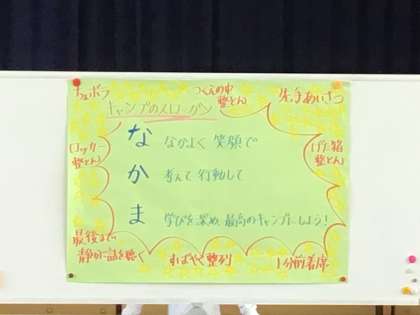 チョボラ
つくえの中
整とん
先手あいさつ
キャンプのスローガン
(ロッカー
整とん)
(げた箱
整とん)
な なかよく 笑顔で
か 考えて 行動して
ま 学びを深め 最高のキャンプにしよう!
最後まで
静かに話を聴く
すばやく整列
1分前着席